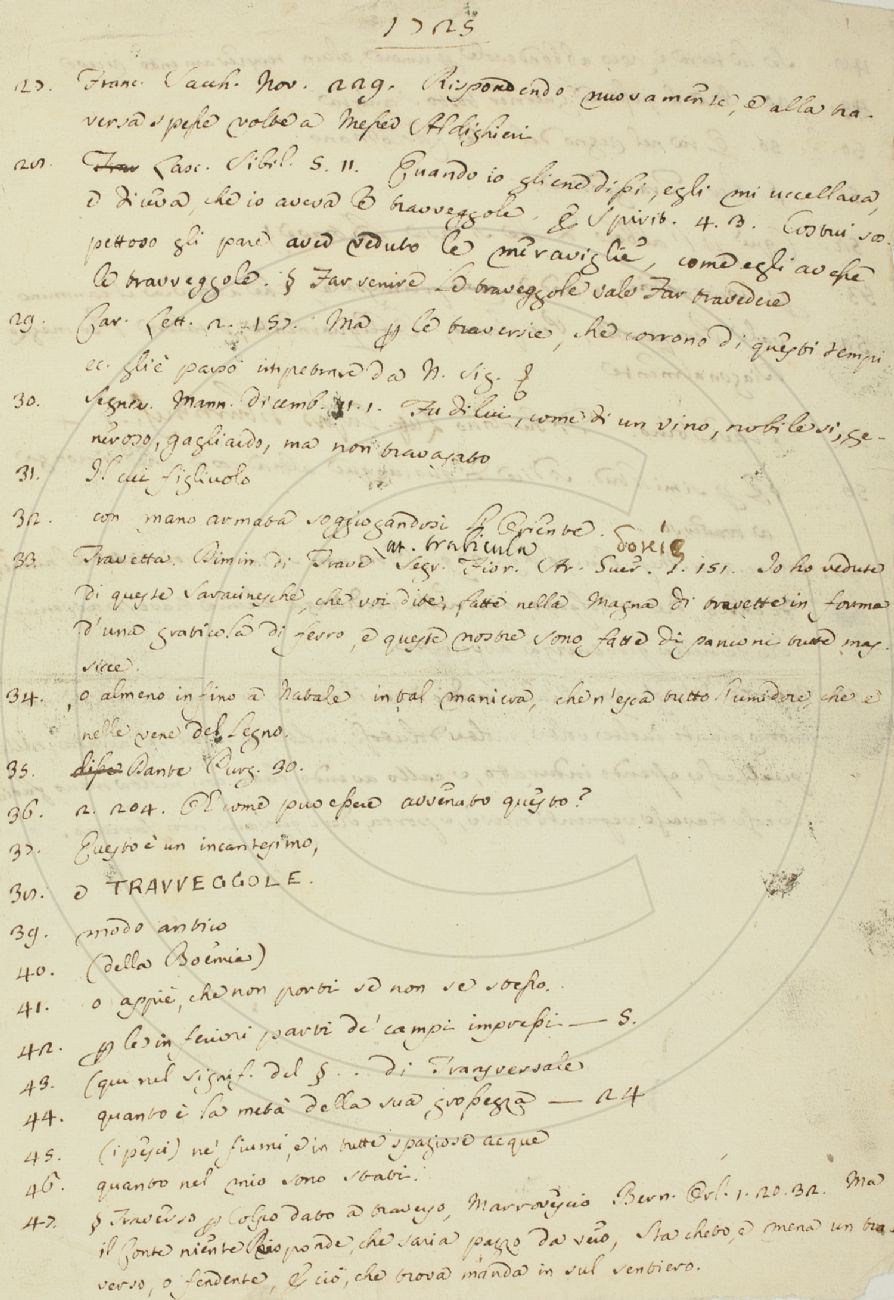 1725
27. Franc. Sacch. Nov. 229. Rispondendo nuovamente, e alla tra-
versa spesse volte a Messer Aldighieri
28. Lasc. Sibil. 5. 11. Quando io gliene dissi, egli mi uccellava,
e diceva, che io aveva le travveggole. E Spirit. 4. 3. Costui so-
pettoso gli pare aver veduto le meraviglie, come egli avesse
le travveggole. § Far venire le traveggole vale Far travedere
29. Car. Lett. 2. 157. Ma p le traversie, che corrono di questi tempi
ec. gliè parso impetrare da N. Sig.
30. Segner. Mann. dicemb. 11. 1. Fu di lui, come di un vino, nobile sì, ge-
neroso, gagliardo, ma non travasato
31. Il cui figliuolo
32. con mano armata soggiogandosi l'Oriente.
at. trabicula δοκίς
33. Travetta. Dimin. di Trave Segr. Fior. Ar. Guer. 7. 151. Io ho vedute
di queste Saracinesche, che voi dite, fatte nella Magna di travette in forma
d'una graticola di ferro, e queste nostre sono fatte di panconi tutte mas-
sicce.
34. o almeno infino a Natale in tal maniera, che n'esca tutto l'umidore, che è
nelle vene del legno.
35. Dante Purg. 30.
36. 2. 204. E come può essere avvenuto questo?
37. Questo è un incantesimo,
38. e TRAVVEGGOLE.
39. modo antico
40. (della Boemia)
41. o appiè, che non porti se non se stesso.
42. p le inferiori parti de' campi impressi — 5.
43. (qui nel signif. del § . . di Transversale
44. quanto è la metà della sua grossezza — 24
45. (i pesci) ne' fiumi, e in tutte spaziose acque
46. quanto nel mio sono stati.
47. § Traverso p Colpo dato a traverso, Marrovescio Bern. Orl. 1. 20. 32. Ma
il Conte niente Risponde, che saria pazzo da vero, Sta cheto, e mena un tra-
verso, o fendente, E ciò, che trova manda in sul sentiero.